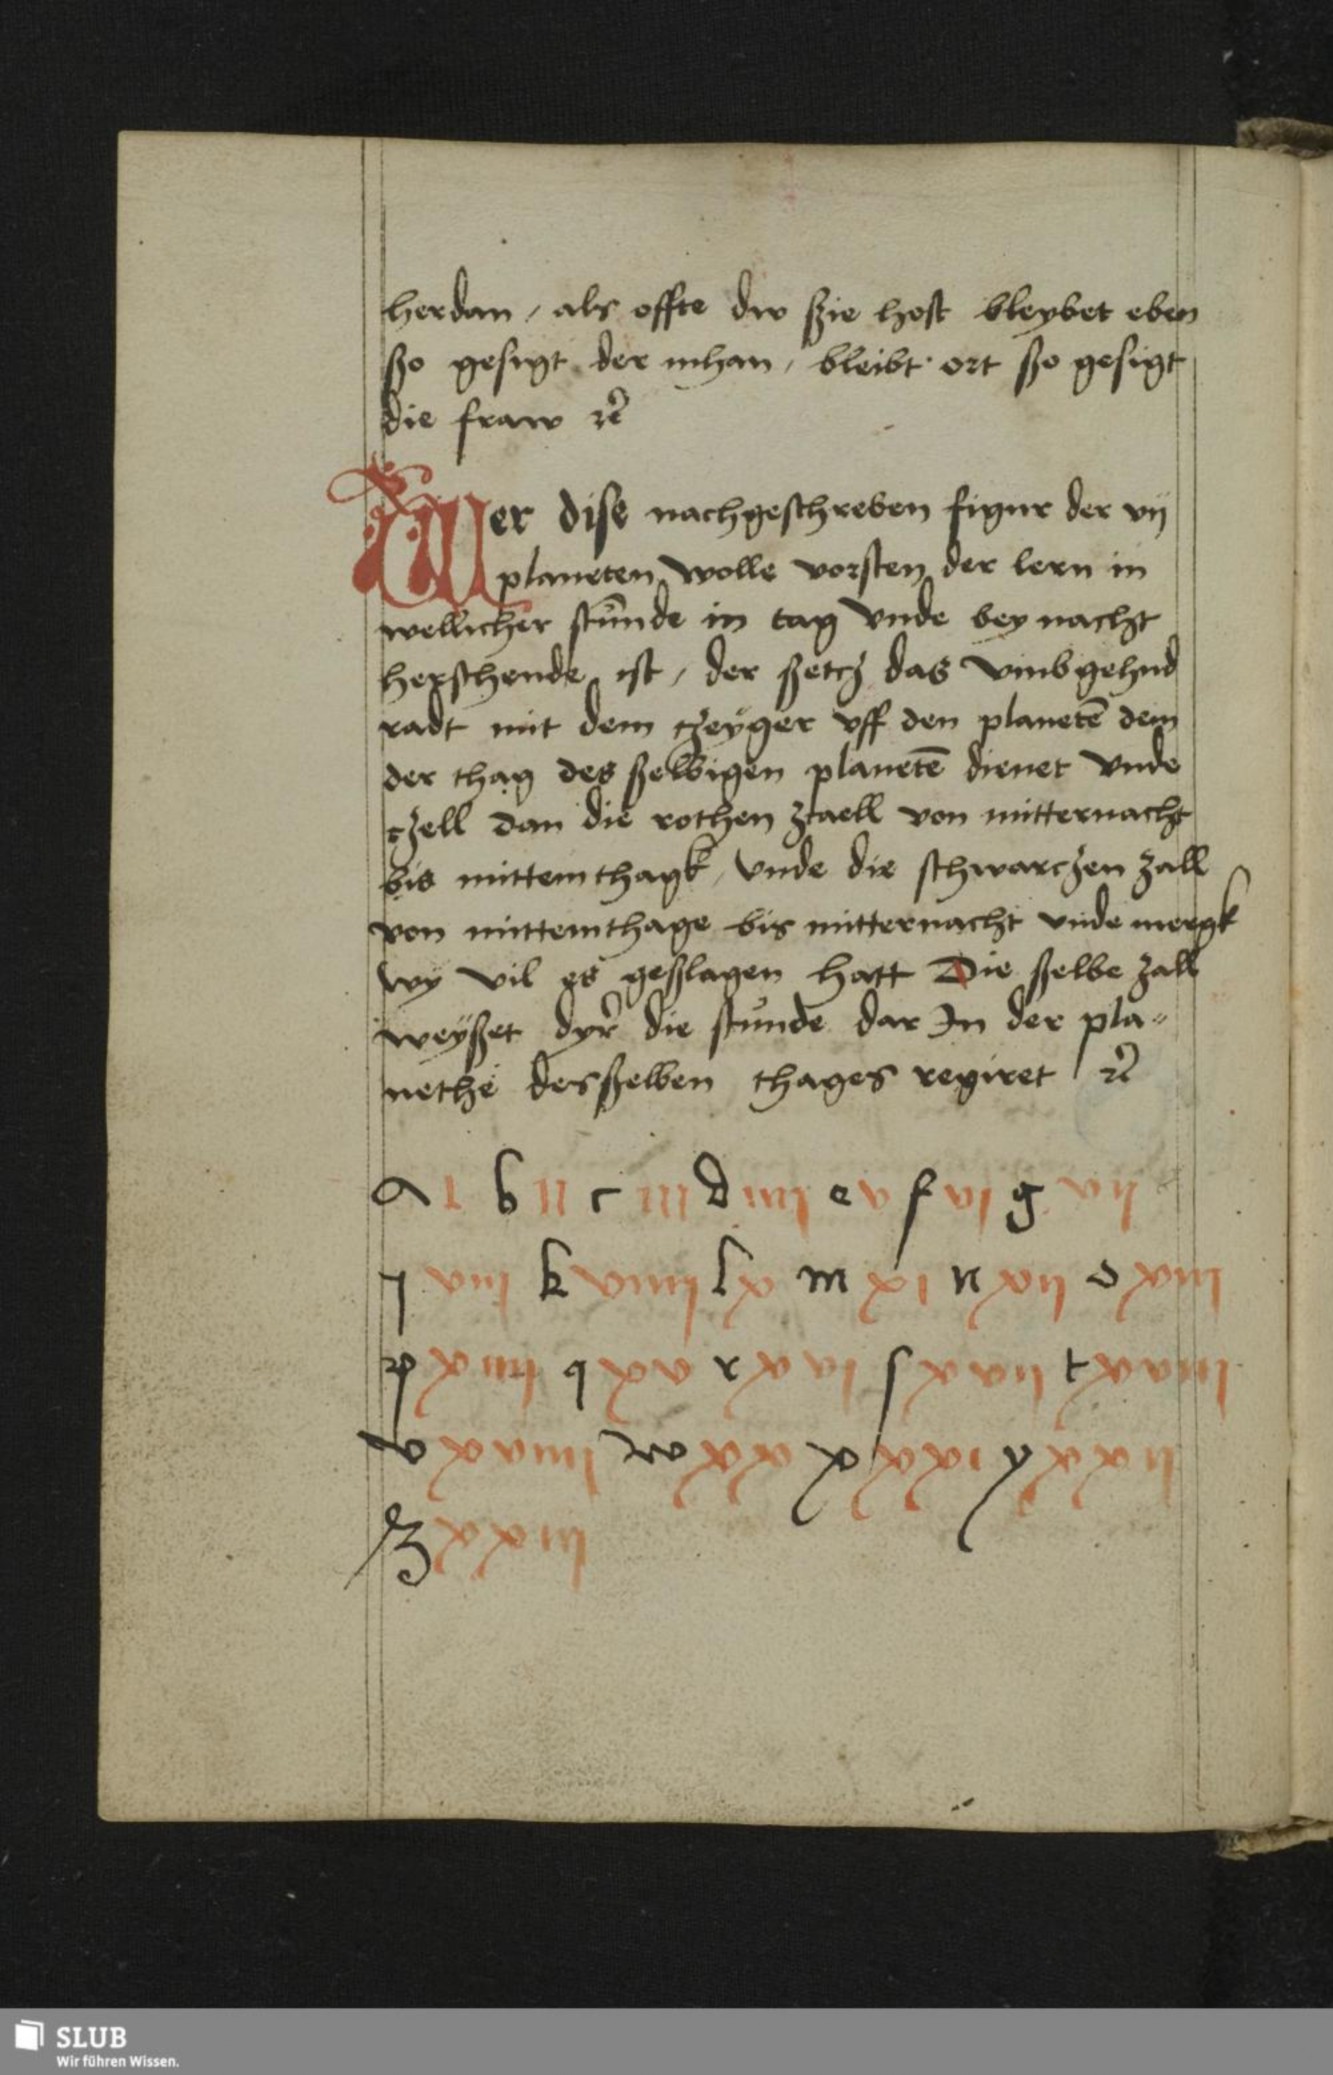 herdan / als offte dw ßie host bleybet eben
ßo gesigt der mhan / bleibt ort ßo gesigt
die fraw rc̃
Wer dise nachgeschreben figur der vij
planeten wolle vorsten der lern in
wellicher stunde in tag vnde bey nacht
herschende ist / der ßetcz das vmbgehnd
radt mit dem czeyger vff den planetẽ dem
der thag des ßelbigen planetẽ dienet vnde
czell dan die rothen zcaell von mitternacht
bis mittemthagk / vnde die schwarczen zall
von mittemthage bis mitternacht vnde mergk
wy vil es geßlagen hatt Die ßelbe zall
weyßet dyr die stunde dar In der pla-
nethe desßelben thages regiret rc̃
a 1 b ii c iii d iiij e v f vj g vij
i viij k viiij l x m xi n xij o xiij
p xiiij q xv r xvj s xvij t xviij
v xviiij w xx x xxi y xxij
z xxiij
SLUB
Wir führen Wissen.